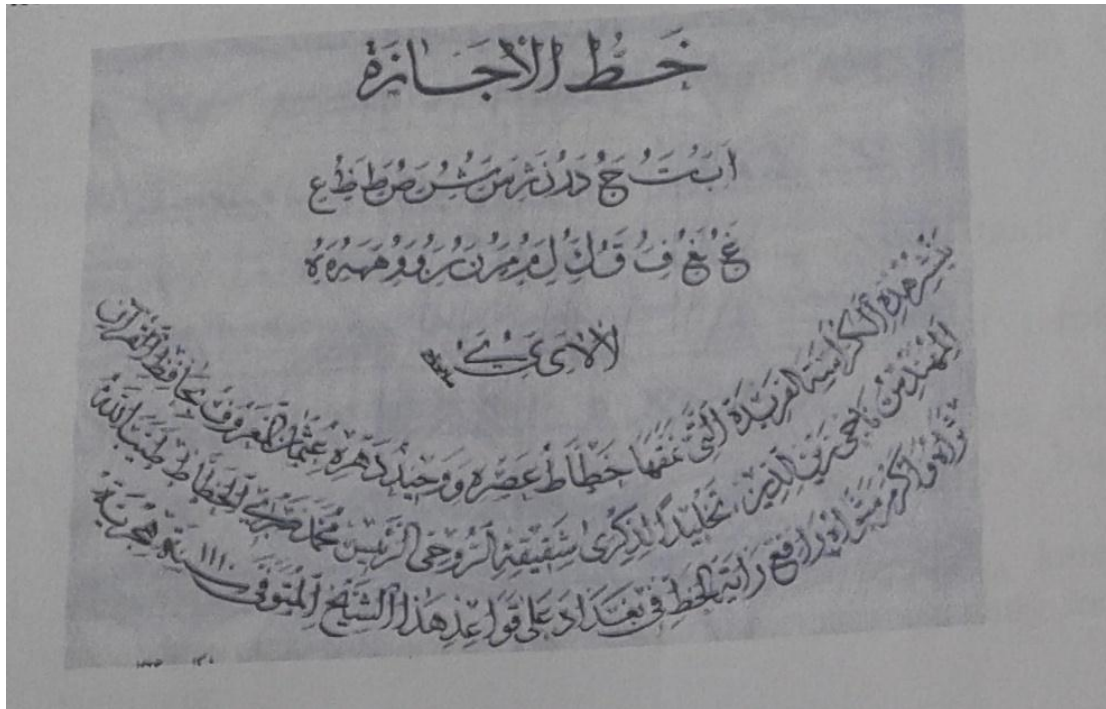 خط الاجازة
ا ب ت ج د ر ز س ش ص ط ظ ع
غ ف ق ك ل م ن و ه
لا ى
ينشر هذه الكراسة الفريدة التي نمقها خطاط عصره ووحيد دهره عثمان المعروف بحافظ القرآن
المهندس ناجي زين الدين، تخليدا لذكرى شقيقه الروحي الرئيس محمد صبري الخطاط طيب الله
ثراه وأكرم مثواه رافع راية الخط في بغداد على قواعد هذا الشيخ المتوفى سنة ١١١٠ هجرية